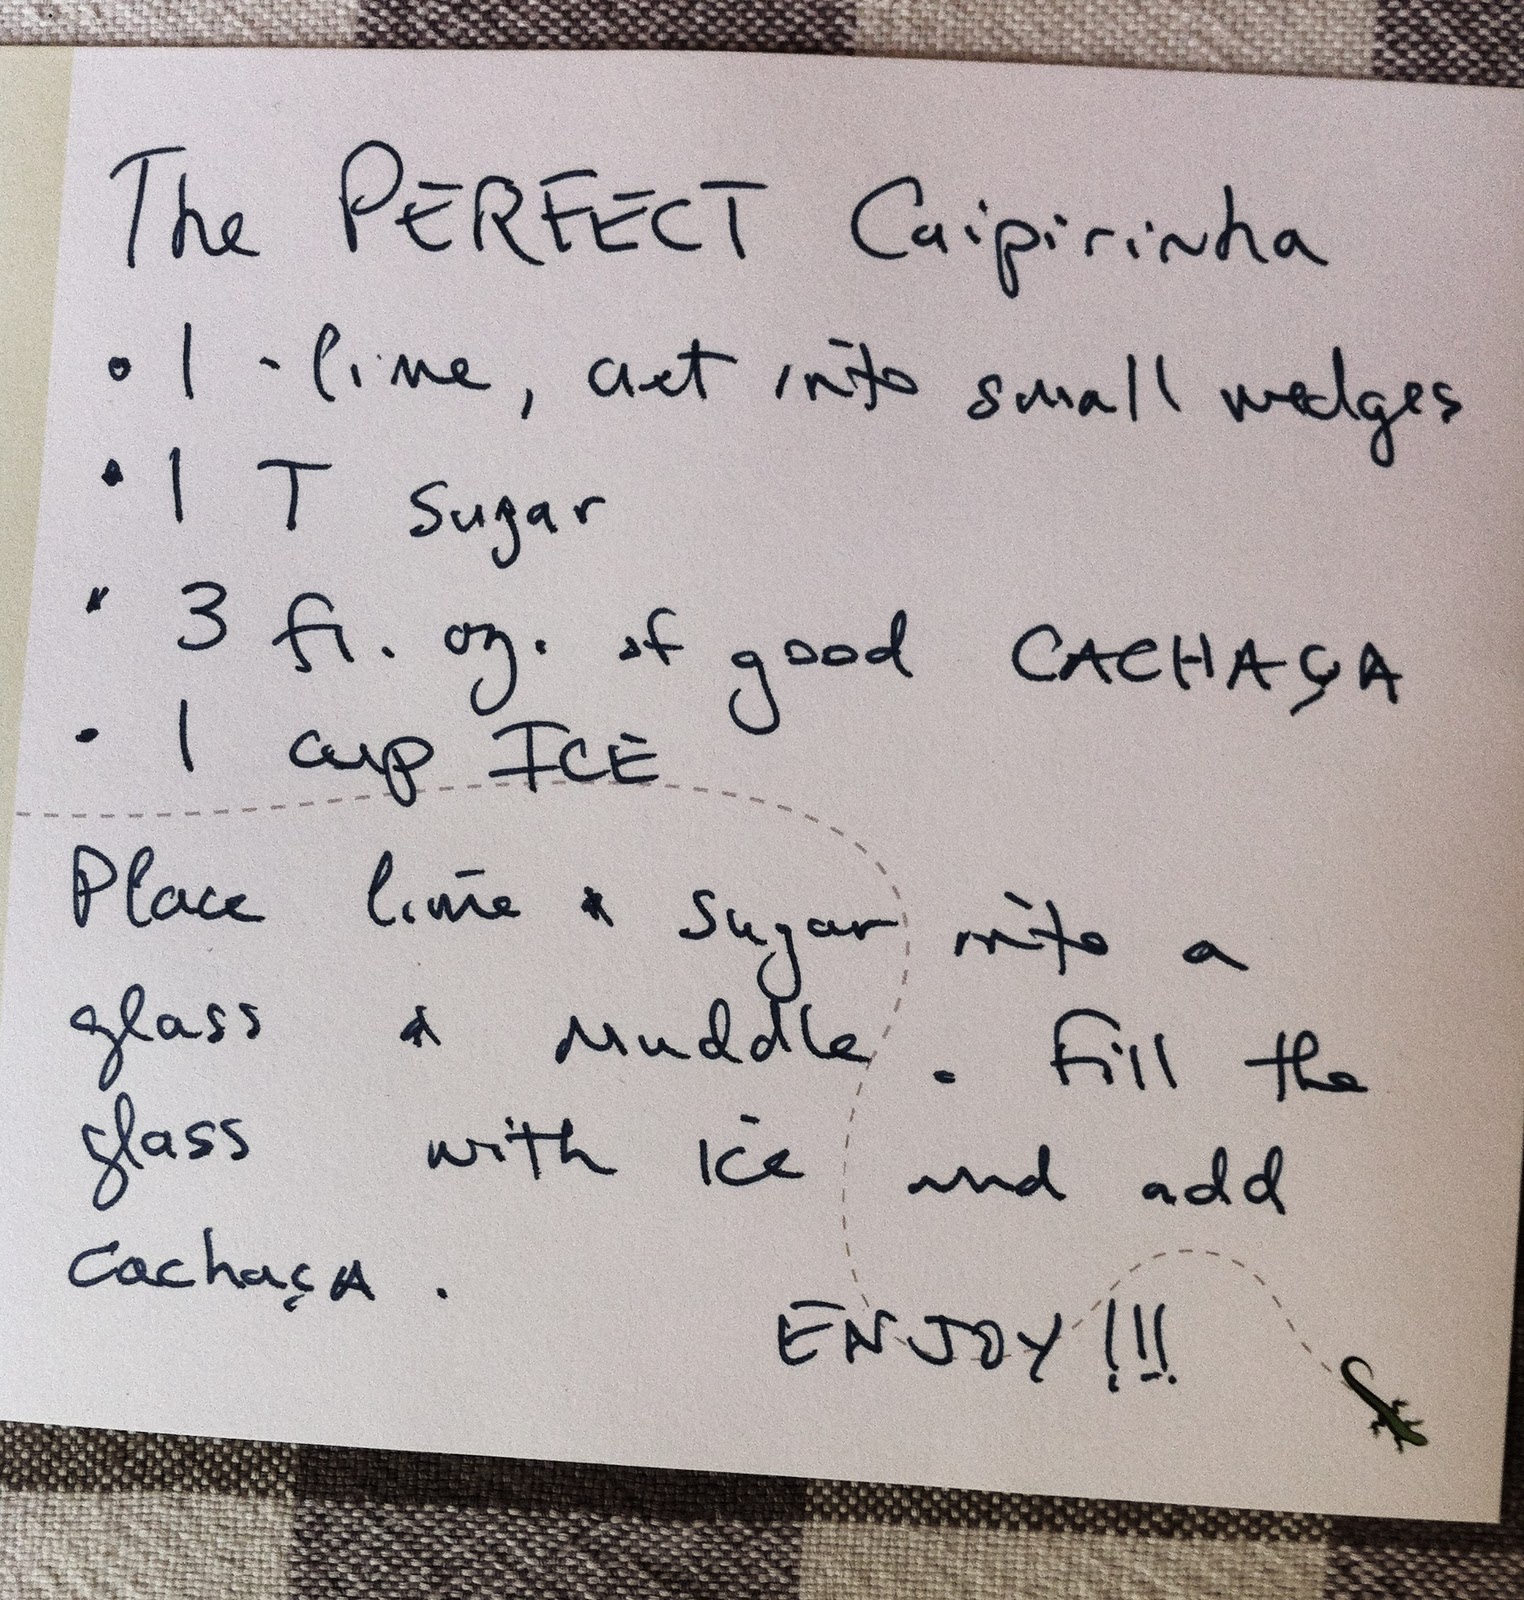 The PERFECT Caipirinha
• 1 - lime, cut into small wedges
• 1 T sugar
• 3 fl. oz. of good CACHAÇA
• 1 cup ICE
Place lime & sugar into a
glass & muddle. Fill the
glass with ice and add
cachaça.
ENJOY!!!